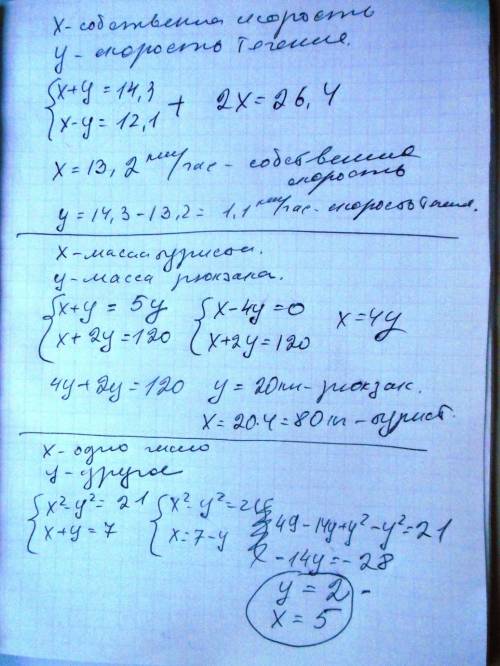 x - собственная скорость
y - скорость течения.
{x+y = 14,3 + 2x = 26,4
{x-y = 12,1
x = 13,2 км/час - собственная скорость
y = 14,3 - 13,2 = 1,1 км/час - скорость течения.
x - масса туриста.
y - масса рюкзака.
{x+y = 5y {x-4y = 0 x = 4y
{x+2y = 120 {x+2y = 120
4y + 2y = 120 y = 20 кг - рюкзак.
x = 20·4 = 80 кг - турист.
x - одно число
y - другое
{x²-y² = 21 {x²-y² = 49-14y+y²-y² = 21
{x+y = 7 {x = 7-y -14y = -28
y = 2
x = 5